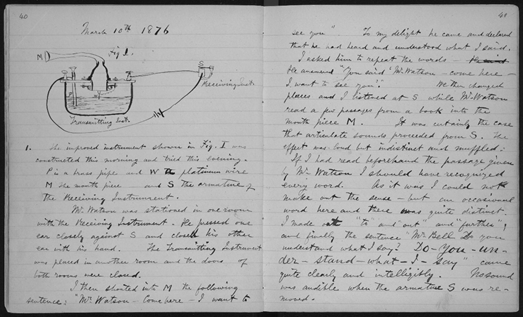 40
March 10th 1876
Fig 1.
M
Receiving Inst.
Transmitting Inst.
1. The improved instrument shown in Fig. I was
constructed this morning and tried this evening.
P is a brass pipe and W the platinum wire
M the mouth piece and S the armature of
the Receiving Instrument.
Mr. Watson was stationed in one room
with the Receiving Instrument. He pressed one
ear closely against S and closed his other
ear with his hand. The Transmitting Instrument
was placed in another room and the doors of
both rooms were closed.
I then shouted into M the following
sentence: "Mr. Watson - Come here - I want to
41
see you". To my delight he came and declared
that he had heard and understood what I said.
I asked him to repeat the words.
He answered "You said 'Mr. Watson - come here -
I want to see you'." We then changed
places and I listened at S while Mr. Watson
read a few passages from a book into the
mouth piece M. It was certainly the case
that articulate sounds proceeded from S. The
effect was loud but indistinct and muffled.
If I had read beforehand the passage given
by Mr. Watson I should have recognized
every word. As it was I could not
make out the sense - but an occasional
word here and there was quite distinct.
I made out "to" and "out" and "further";
and finally the sentence "Mr. Bell Do you
understand what I say? Do - you - un -
der - stand - what - I - say" came
quite clearly and intelligibly. No sound
was audible when the armature S was re-
moved.